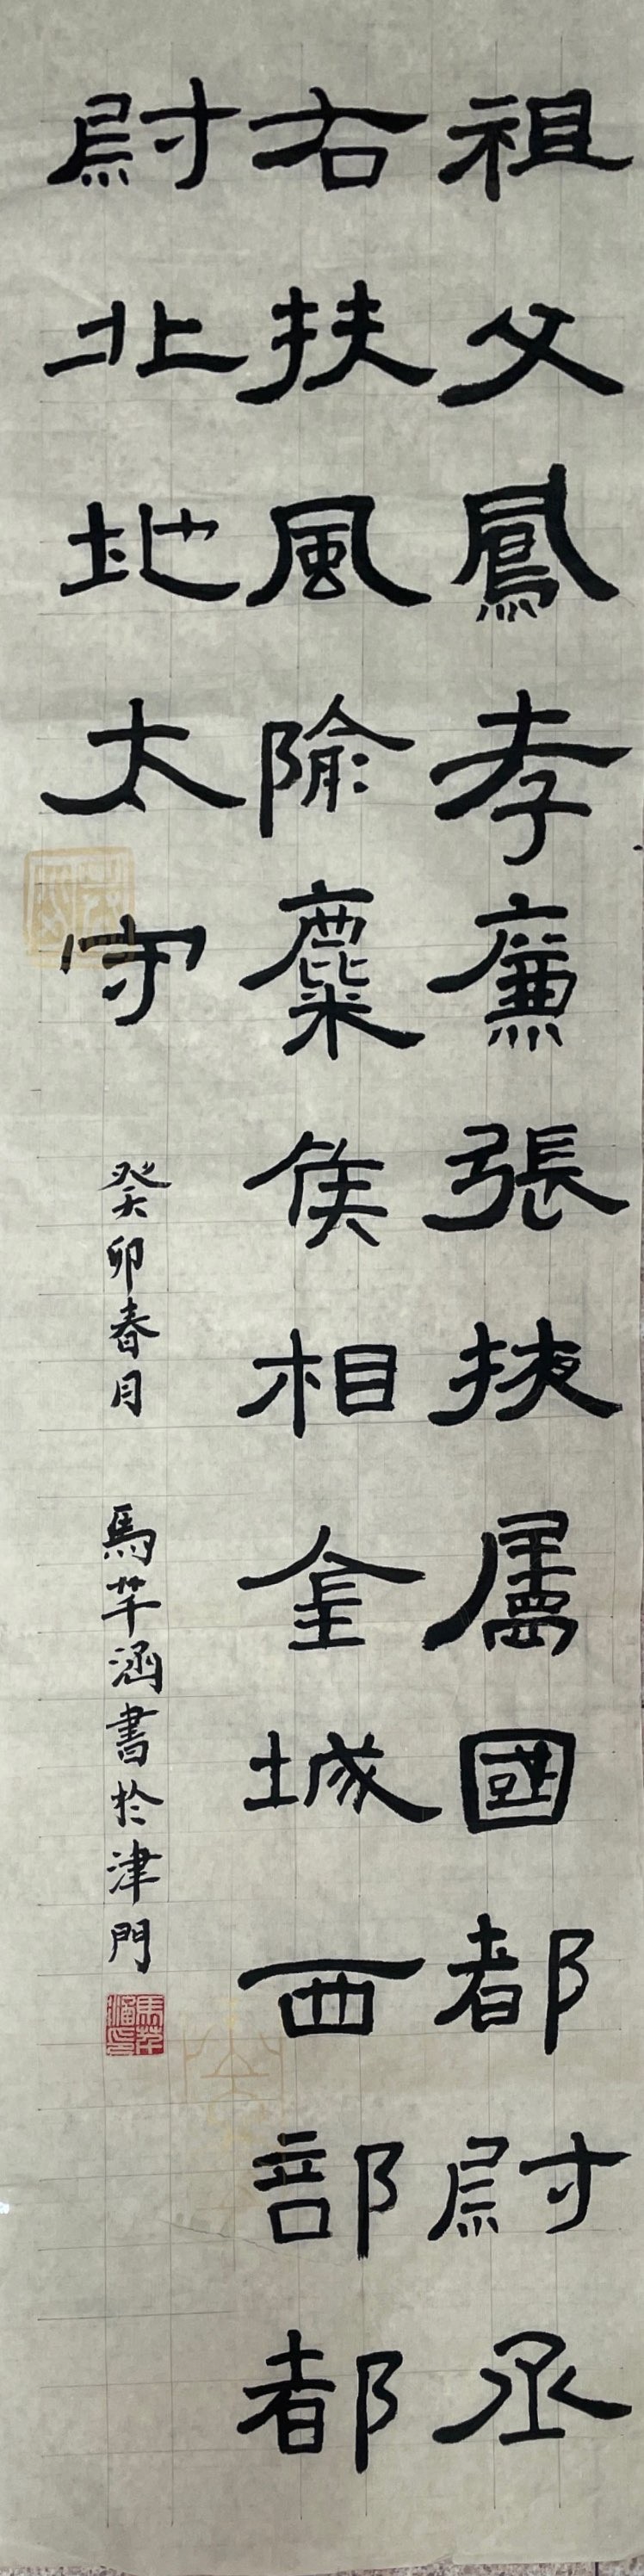 祖父鳳孝廉張掖屬國都尉丞
右扶風隃麋侯相金城西部都
尉北地太守
癸卯春月 馬芊涵書於津門